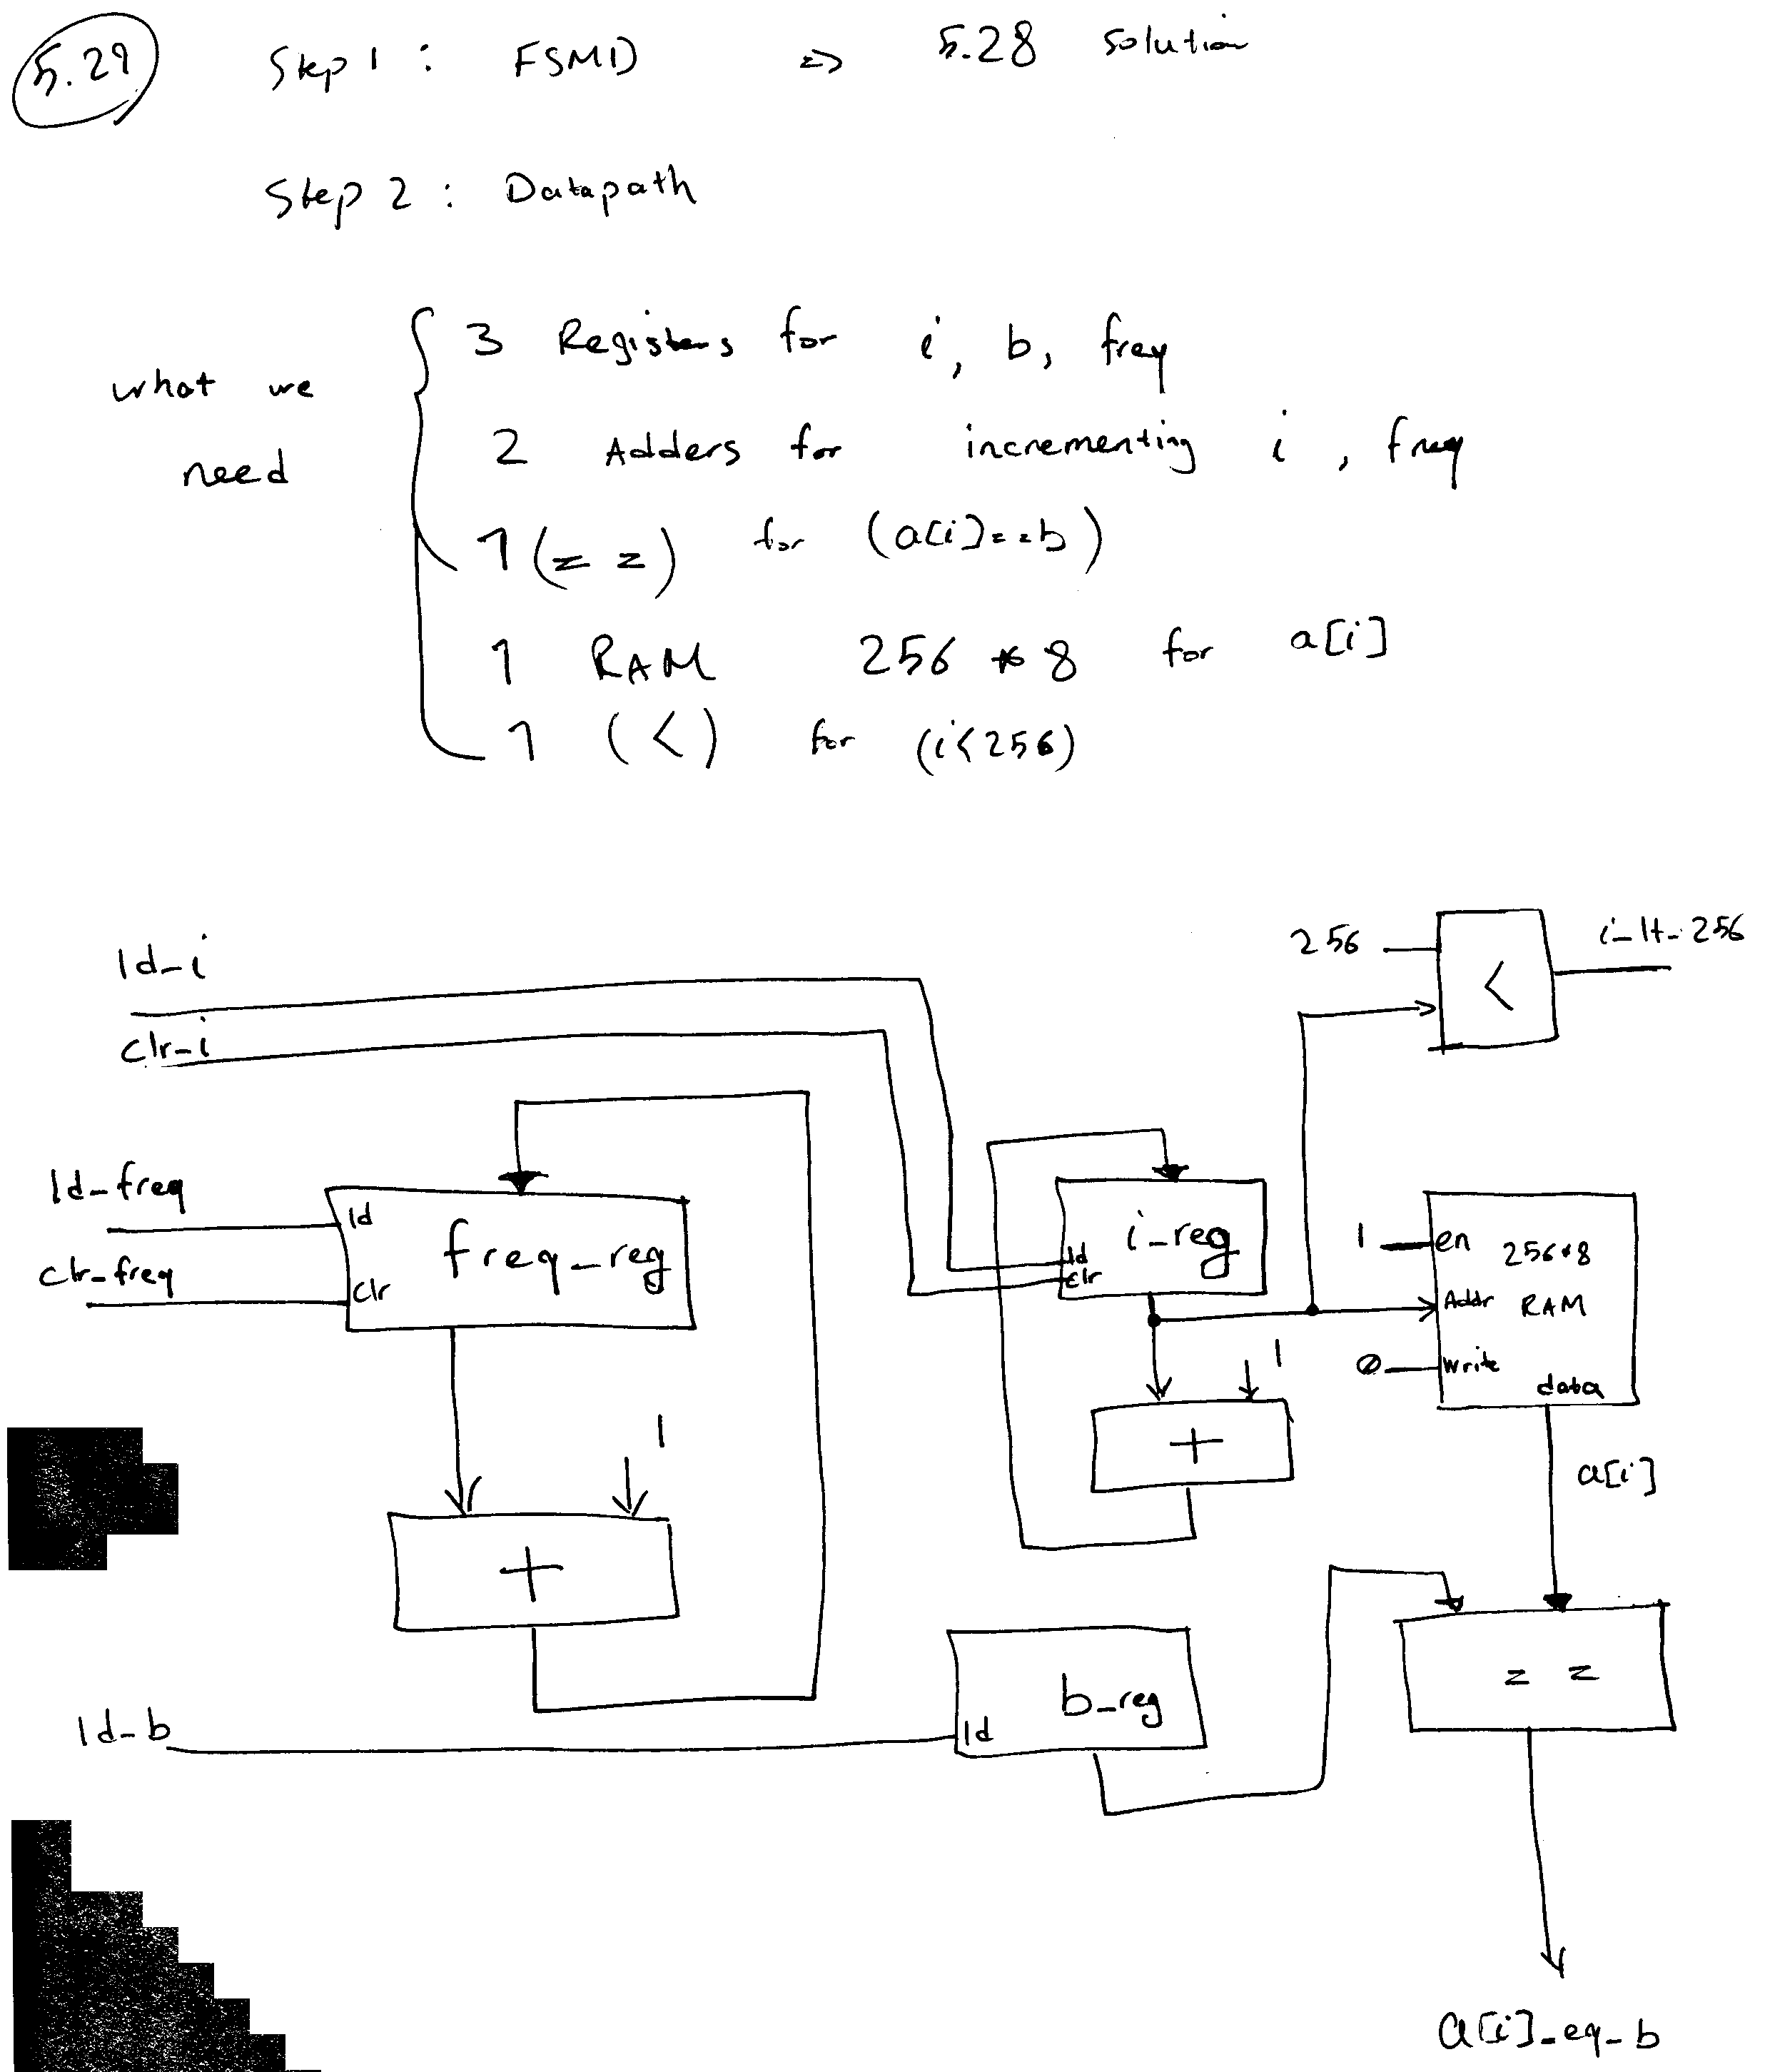 5.29 Step 1 : FSMD => 5.28 solution
Step 2 : Datapath
what we need
3 Registers for i, b, freq
2 Adders for incrementing i, freq
1 (==) for (a[i]==b)
1 RAM 256 * 8 for a[i]
1 (<) for (i<256)
256 < i_lt_256
ld_i
clr_i
ld_freq
clr_freq
ld
clr
freq_reg
i_reg
ld
clr
1 en 256*8
Addr RAM
0 write
data
1
+
1
+
a[i]
==
b_reg
ld
ld_b
a[i]_eq_b